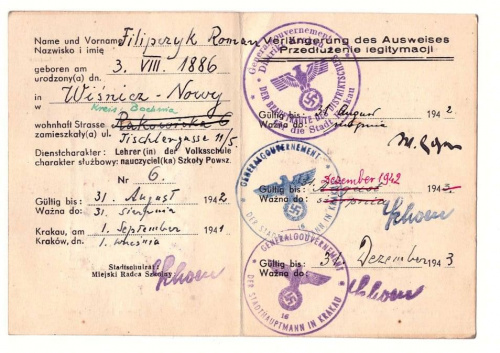 Name und Vorname Filipczyk Roman
Nazwisko i imię
geboren am 3. VIII. 1886
urodzony(a) dn.
in Wiśnicz-Nowy
w Kreis Bochnia
wohnhaft Strasse Rakowicka 6
zamieszkały(a) ul. Tischlergasse 11/5.
Dienstcharakter: Lehrer(in) der Volksschule
charakter służbowy: nauczyciel(ka) Szkoły Powsz.
Nr 6.
Gültig bis: 31. August 1942
Ważna do: 31. sierpnia
Krakau, am 1. September 1941
Kraków, dn. 1. września
Stadtschulrat
Miejski Radca Szkolny
Verlängerung des Ausweises
Przedłużenie legitymacji
Generalgouvernement
für die Stadt Krakau
Gültig bis: 31. August 1942
Ważna do: sierpnia
GENERALGOUVERNEMENT
DER STADTHAUPTMANN IN KRAKAU
Gültig bis: Dezember 1942
August 194
Ważna do: sierpnia
GENERALGOUVERNEMENT
DER STADTHAUPTMANN IN KRAKAU
16
Gültig bis: 31. Dezember 1943
Ważna do: